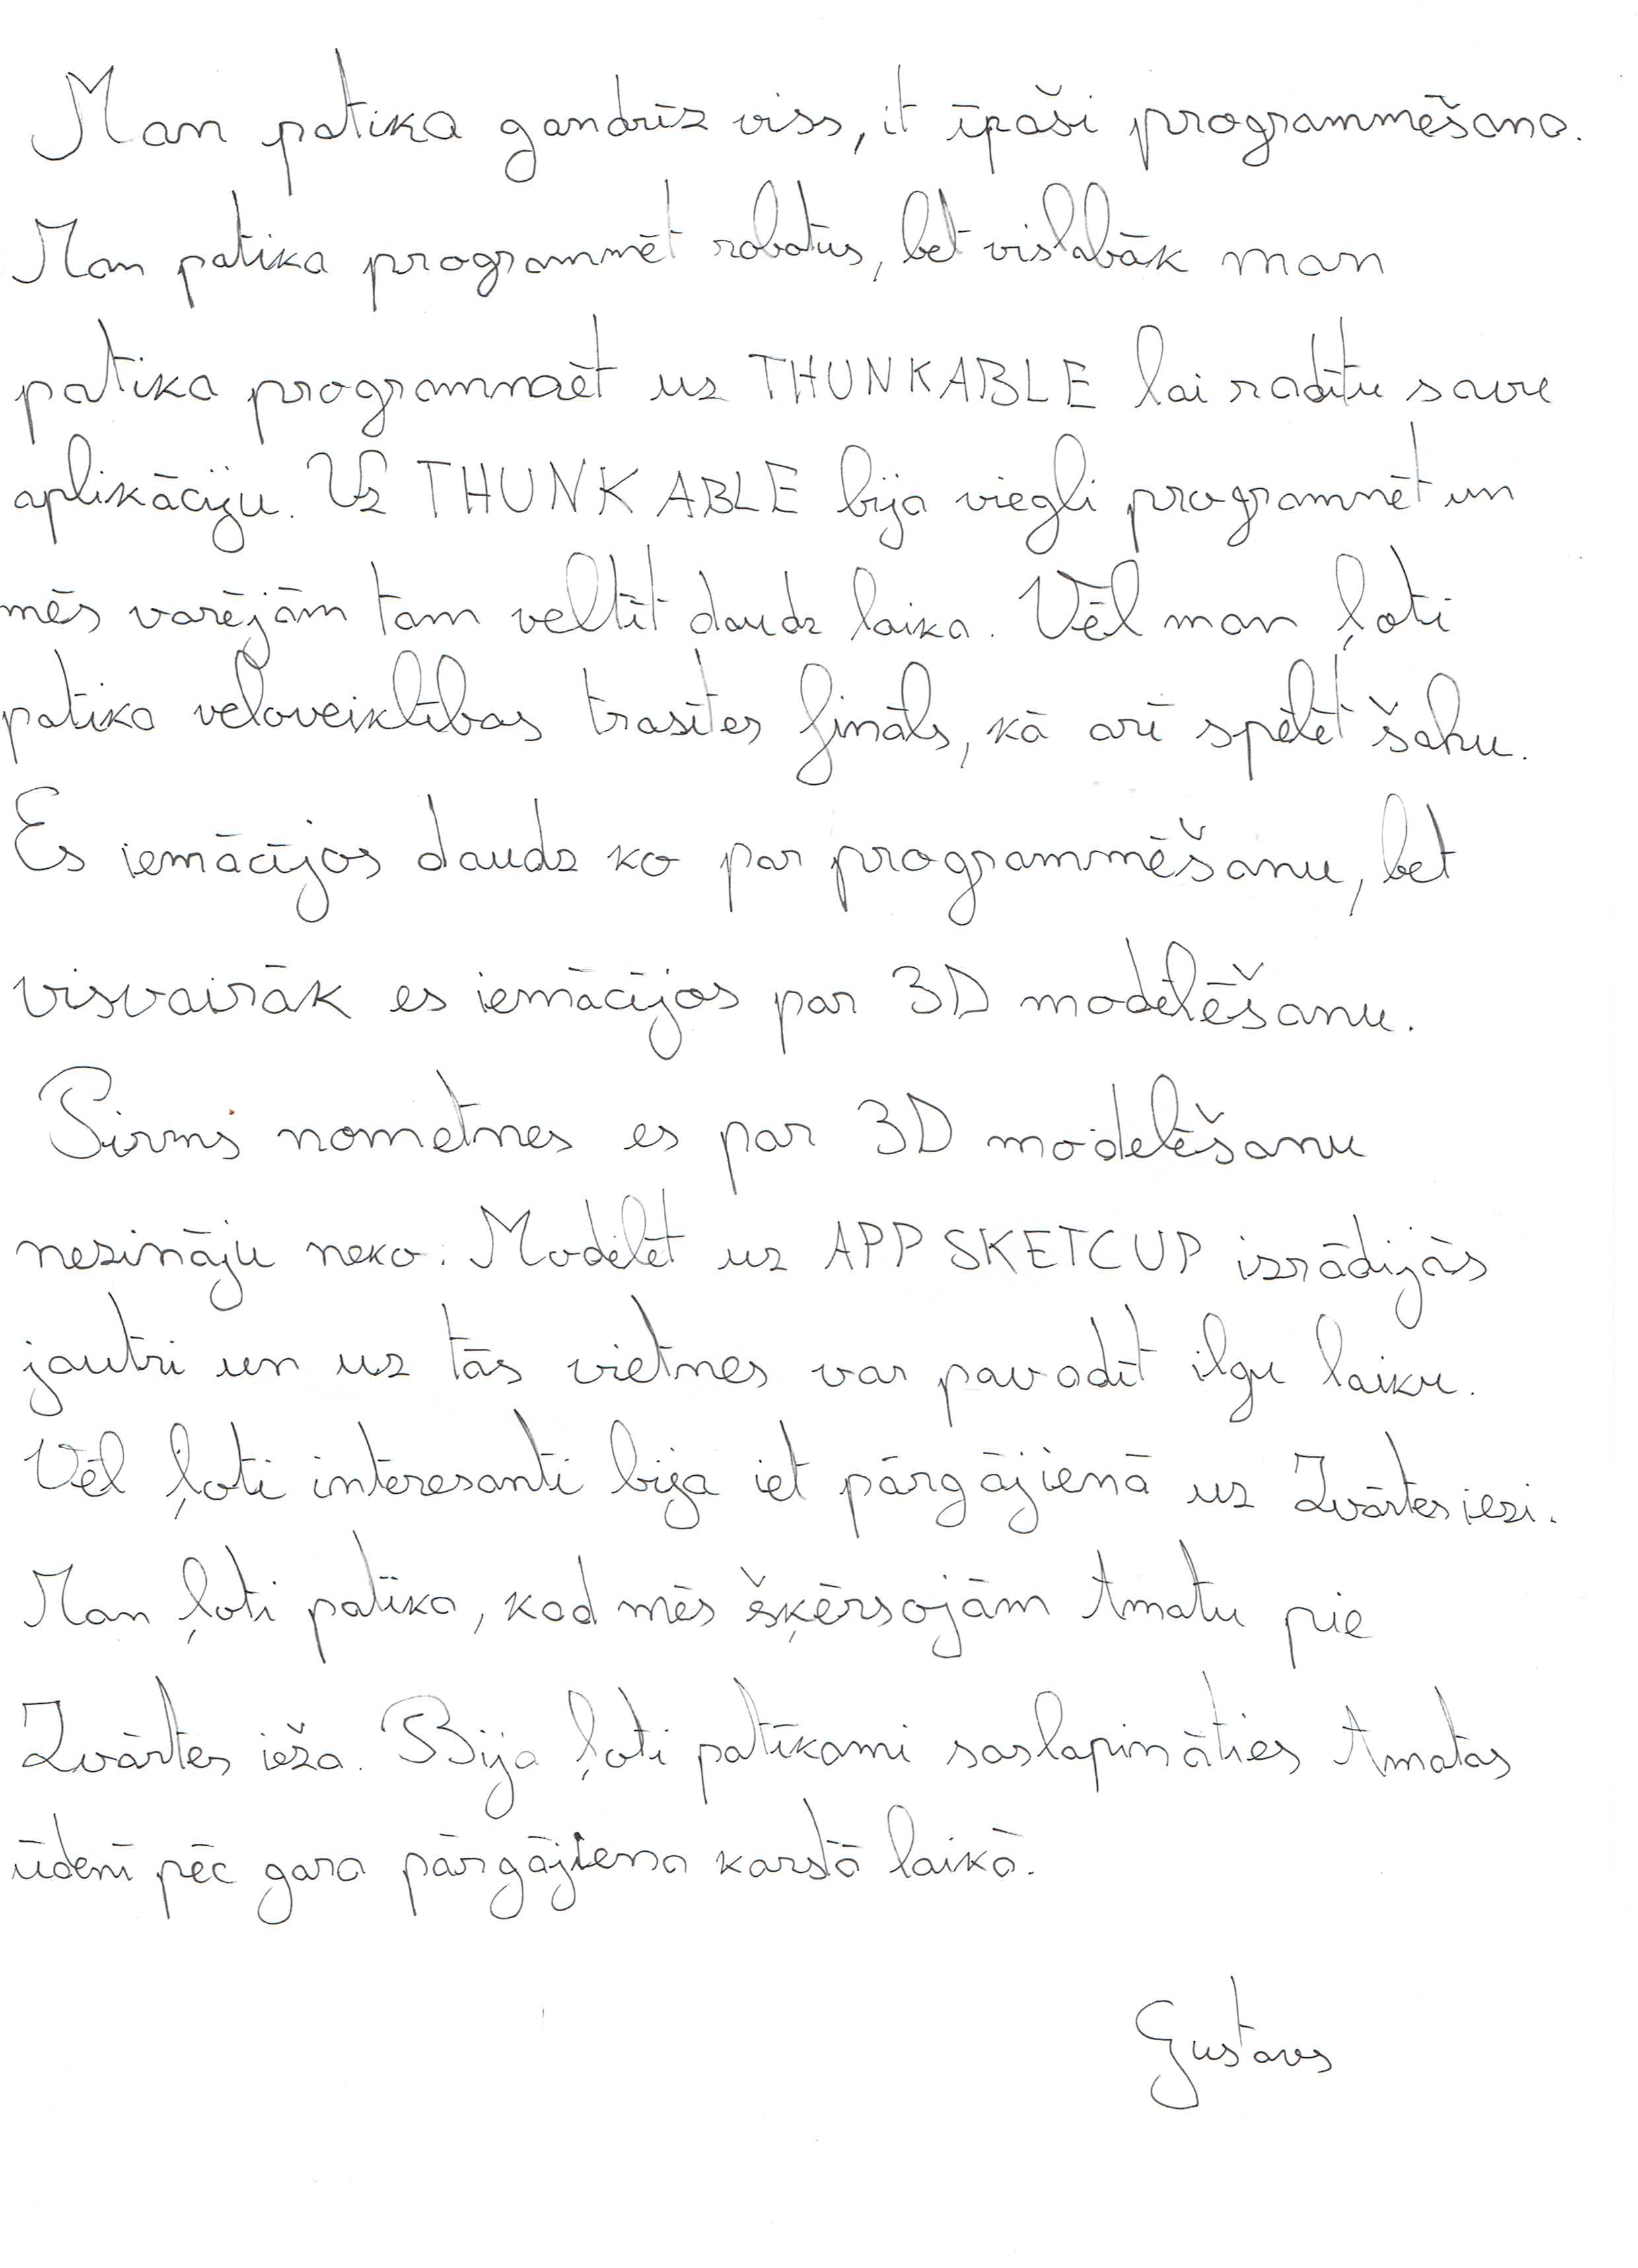 Man patika gandrīz viss, it īpaši programmēšana.
Man patika programmēt robotus, bet vislabāk man
patika programmēt uz THUNKABLE lai radītu savu
aplikāciju. Uz THUNKABLE bija viegli programmēt un
mēs varējām tam veltīt daudz laika. Vēl man ļoti
patika veloveiklības trasītes fināls, kā arī spēlēt šahu.
Es iemācījos daudz ko par programmēšanu, bet
visvairāk es iemācījos par 3D modelēšanu.
Pirms nometnes es par 3D modelēšanu
nezināju neko. Modelēt uz APP SKETCUP izrādijās
jautri un uz tās vietnes var pavadīt ilgu laiku.
Vēl ļoti interesanti bija iet pārgājienā uz Zvārtes iezi.
Man ļoti patīka, kad mēs šķērsojām Amatu pie
Zvārtes ieža. Bija ļoti patīkami saslapināties Amatas
ūdenī pēc gara pārgājiena karstā laikā.
Gustavs